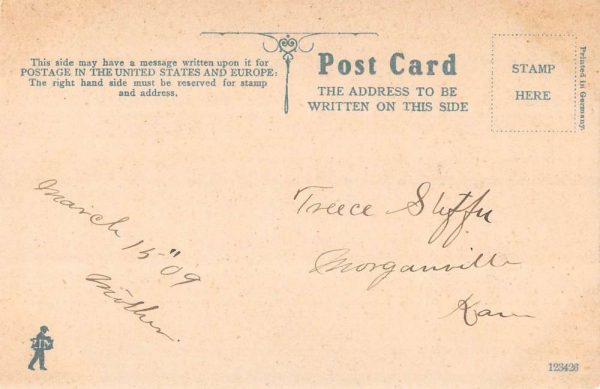 This side may have a message written upon it for
POSTAGE IN THE UNITED STATES AND EUROPE:
The right hand side must be reserved for stamp
and address.
Post Card
THE ADDRESS TO BE
WRITTEN ON THIS SIDE
STAMP
HERE
Printed in Germany.
March 15-"09
Mother.
Treece
Morganville
Kan
123426